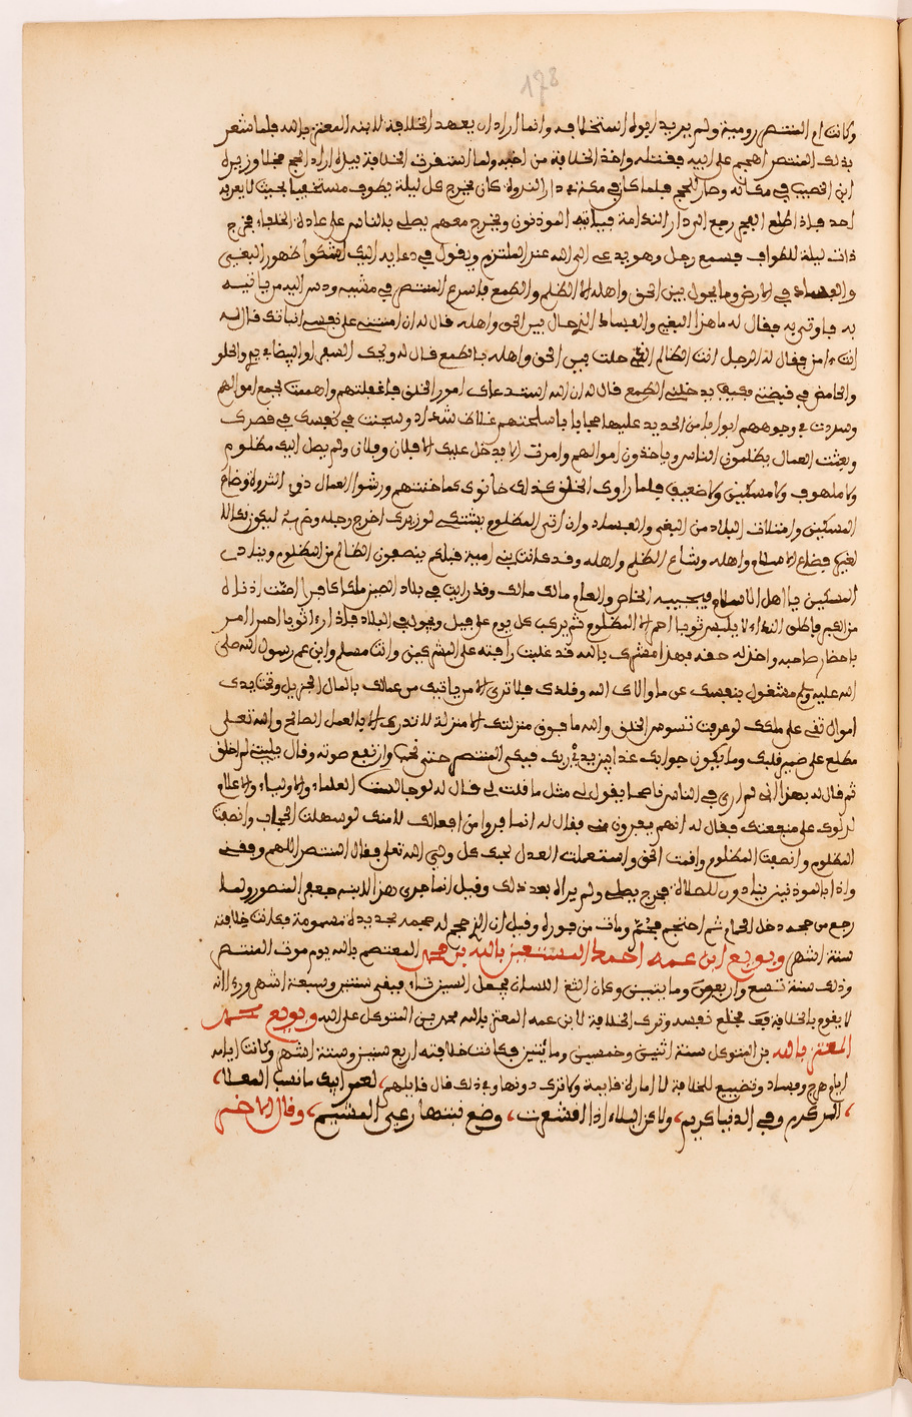 178
وكانت ام المنتصر رومية ولم يريد ابوه استخلافه وانما اراد ان يعهد الخلافة لابنه المعتز بالله فلما شعر
بذلك المنتصر اهجم على ابيه فقتله واخذ الخلافة من اخيه ولما استقرت الخلافة بيده اراد الحج فخلا وزيره
ابن الخصيب في مكانه وصار للحج فلما كان في مكة نزل دار الندوة كان يخرج كل ليلة يطوف مستخفيا بحيث لا يعرفه
احد فاذا طلع الفجر رجع الى دار الندامة فياتيه الموذنون ويخرج معهم يصلي بالناس على عادة الخلفاء فخرج
ذات ليلة للطواف فسمع رجل وهو يدعى الى الله عند الملتزم ويقول في دعايه اليك اشكوا ظهور البغي
والفساد في الارض وما يحول بين الحق واهله الا الظلم والطمع فاسرع المنتصر في مشيه ودس اليه من ياتيه
به فاوتي به فقال له ما هذا البغي والفساد الذي حال بين الحق واهله قال له ان امنتني على نفسي انباتك قال له
انت ءامن فقال له الرجل انت الظالم الذي حلت بين الحق واهله بالطمع قال له ويحك الصفراء والبيضاء بيدي والحلو
والحامض في قبضتي فكيف يدخلني الطمع قال له ان الله استدعاك امور الخلق فاغفلتهم واهممت بجمع اموالهم
وسددت في وجوههم ابوابا من الحديد عليها حجابا باسلحتهم غلاظ شداد وسجنت في نفسك في قصرك
وبعثت العمال يظلمون الناس وياخذون اموالهم وامرت الا يدخل عليك الا فلان وفلان ولم يصل اليك مظلوم
ولا ملهوف ولا مسكين ولا ضعيف فلما راوك الخلق كذلك خانوك كما خنتهم ورشوا العمال دوي الثروة وضاع
المسكين وامتلات البلاد من البغي والفساد وان اتى المظلوم يشتكي لوزيرك اخرج رجله وضربه ليكون نكالا
لغيره فضاع الاسلام واهله وشاع الظلم واهله وقد كانت بني امية قبلكم ينصفون الظالم من المظلوم وينادي
المسكين يا اهل الاسلام فيجيبه الخاص والعام مالك مالك وقد رايت في بلاد الصين ملكا كافرا اصمت اذناه
من الكبر فاطلق النداء لا يلبس ثوبا احمر الا المظلوم ثم يركب كل يوم على فيل ويجول في البلاد فاذا رءا ثوبا احمر امر
باحضار صاحبه واخذ له حقه فهذا مشرك بالله قد غلبت رافته على المشركين وانت مسلم وابن عم رسول الله صلى
الله عليه ولم مشغول بنفسك عن ما ولاك الله وقلدك فلا ترى الا من ياتيك من عمالك بالمال الجزيل وتحت يدك
اموال تفي على ملكك لو عرفت تسوس الخلق والله ما فوق منزلتك الا منزلة لا تدرك الا بالعمل الصالح والله تعلى
مطلع على ضمير قلبك وما يكون جوابك غدا بين يدي ربك فبكى المنتصر حتى نحب وارتفع صوته وقال يليتني لم اخلق
ثم قال له بهذا اني لم ارى في الناس ناصحا يقول لي مثل ما قلت لي قال له لو جالست العلماء والاولياء والاعلام
لدلوك على منفعتك فقال له انهم يفرون مني فقال له انما فروا من افعالك لانك لو سهلت الحجاب وانصفت
المظلوم وانصفت المظلوم واقمت الحق واستعملت العدل يحبك كل ولي الله تعلى فقال المنتصر اللهم وفقني
واذا بالموذنين ينادون للصلاة فخرج يصلي ولم يراه بعد ذلك وقيل انما جرى هذا لابنه جعفر المنصور ولما
رجع من حجه دخل الحمام ثم احتجم فحم ومات من فوره وقيل ان الذي حجم له حجمه بحديدة مسمومة فكانت خلافته
ستة اشهر وبويع ابن عمه احمد المستعين بالله بن محمد المعتصم بالله يوم موت المنتصر
وذلك سنة تسع واربعين ومايتين وكان الثغ اللسان يجعل السين ثاء فبقى سنتين وسبعة اشهر ورءا انه
لا يقوم بالخلافة فخلع نفسه وترك الخلافة لابن عمه المعتز بالله محمد بن المتوكل على الله وبويع محمد
المعتز بالله بن المتوكل سنة اثنين وخمسين ومايتين فكانت خلافته اربع سنين وستة اشهر وكانت ايامه
ايام هرج وفساد وتضييع للخلافة لا امارة قايمة ولا ترك دونها وفي ذلك قال قايلهم، لعمر ابيك ما نسب المعلا،
، الى كرم وفي الدنيا كريم، ولاكن البلاد اذا اقشعرت، وضع نبتها رعي المشيم، وقال الاخر